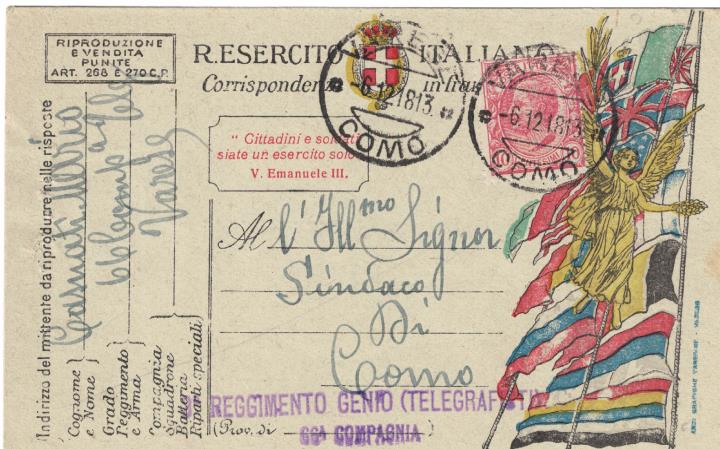 RIPRODUZIONE
E VENDITA
PUNITE
ART. 268 E 270 C.P.
R. ESERCITO ITALIANO
Corrispondenza in fran
VARESE
-6.12.18 13.
COMO
VARESE
-6.12.18 13.
COMO
" Cittadini e soldati
siate un esercito solo
V. Emanuele III.
Al l'Ill.mo Signor
Sindaco
Di
Como
REGGIMENTO GENIO (TELEGRAFISTI)
(Prov. di
66ª COMPAGNIA )
Indirizzo del mittente da riprodurre nelle risposte
Cognome
e Nome
Grado
Reggimento
e Arma
Compagnia
Squadrone
Batteria
Riparti speciali
Mario
Varese